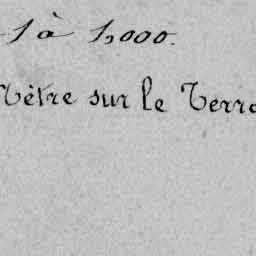 1 à 1,000.
Mètre sur le Terra